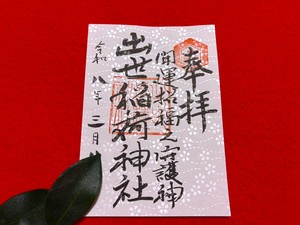 奉拝
開運招福之守護神
出世稲荷神社
令和八年三月